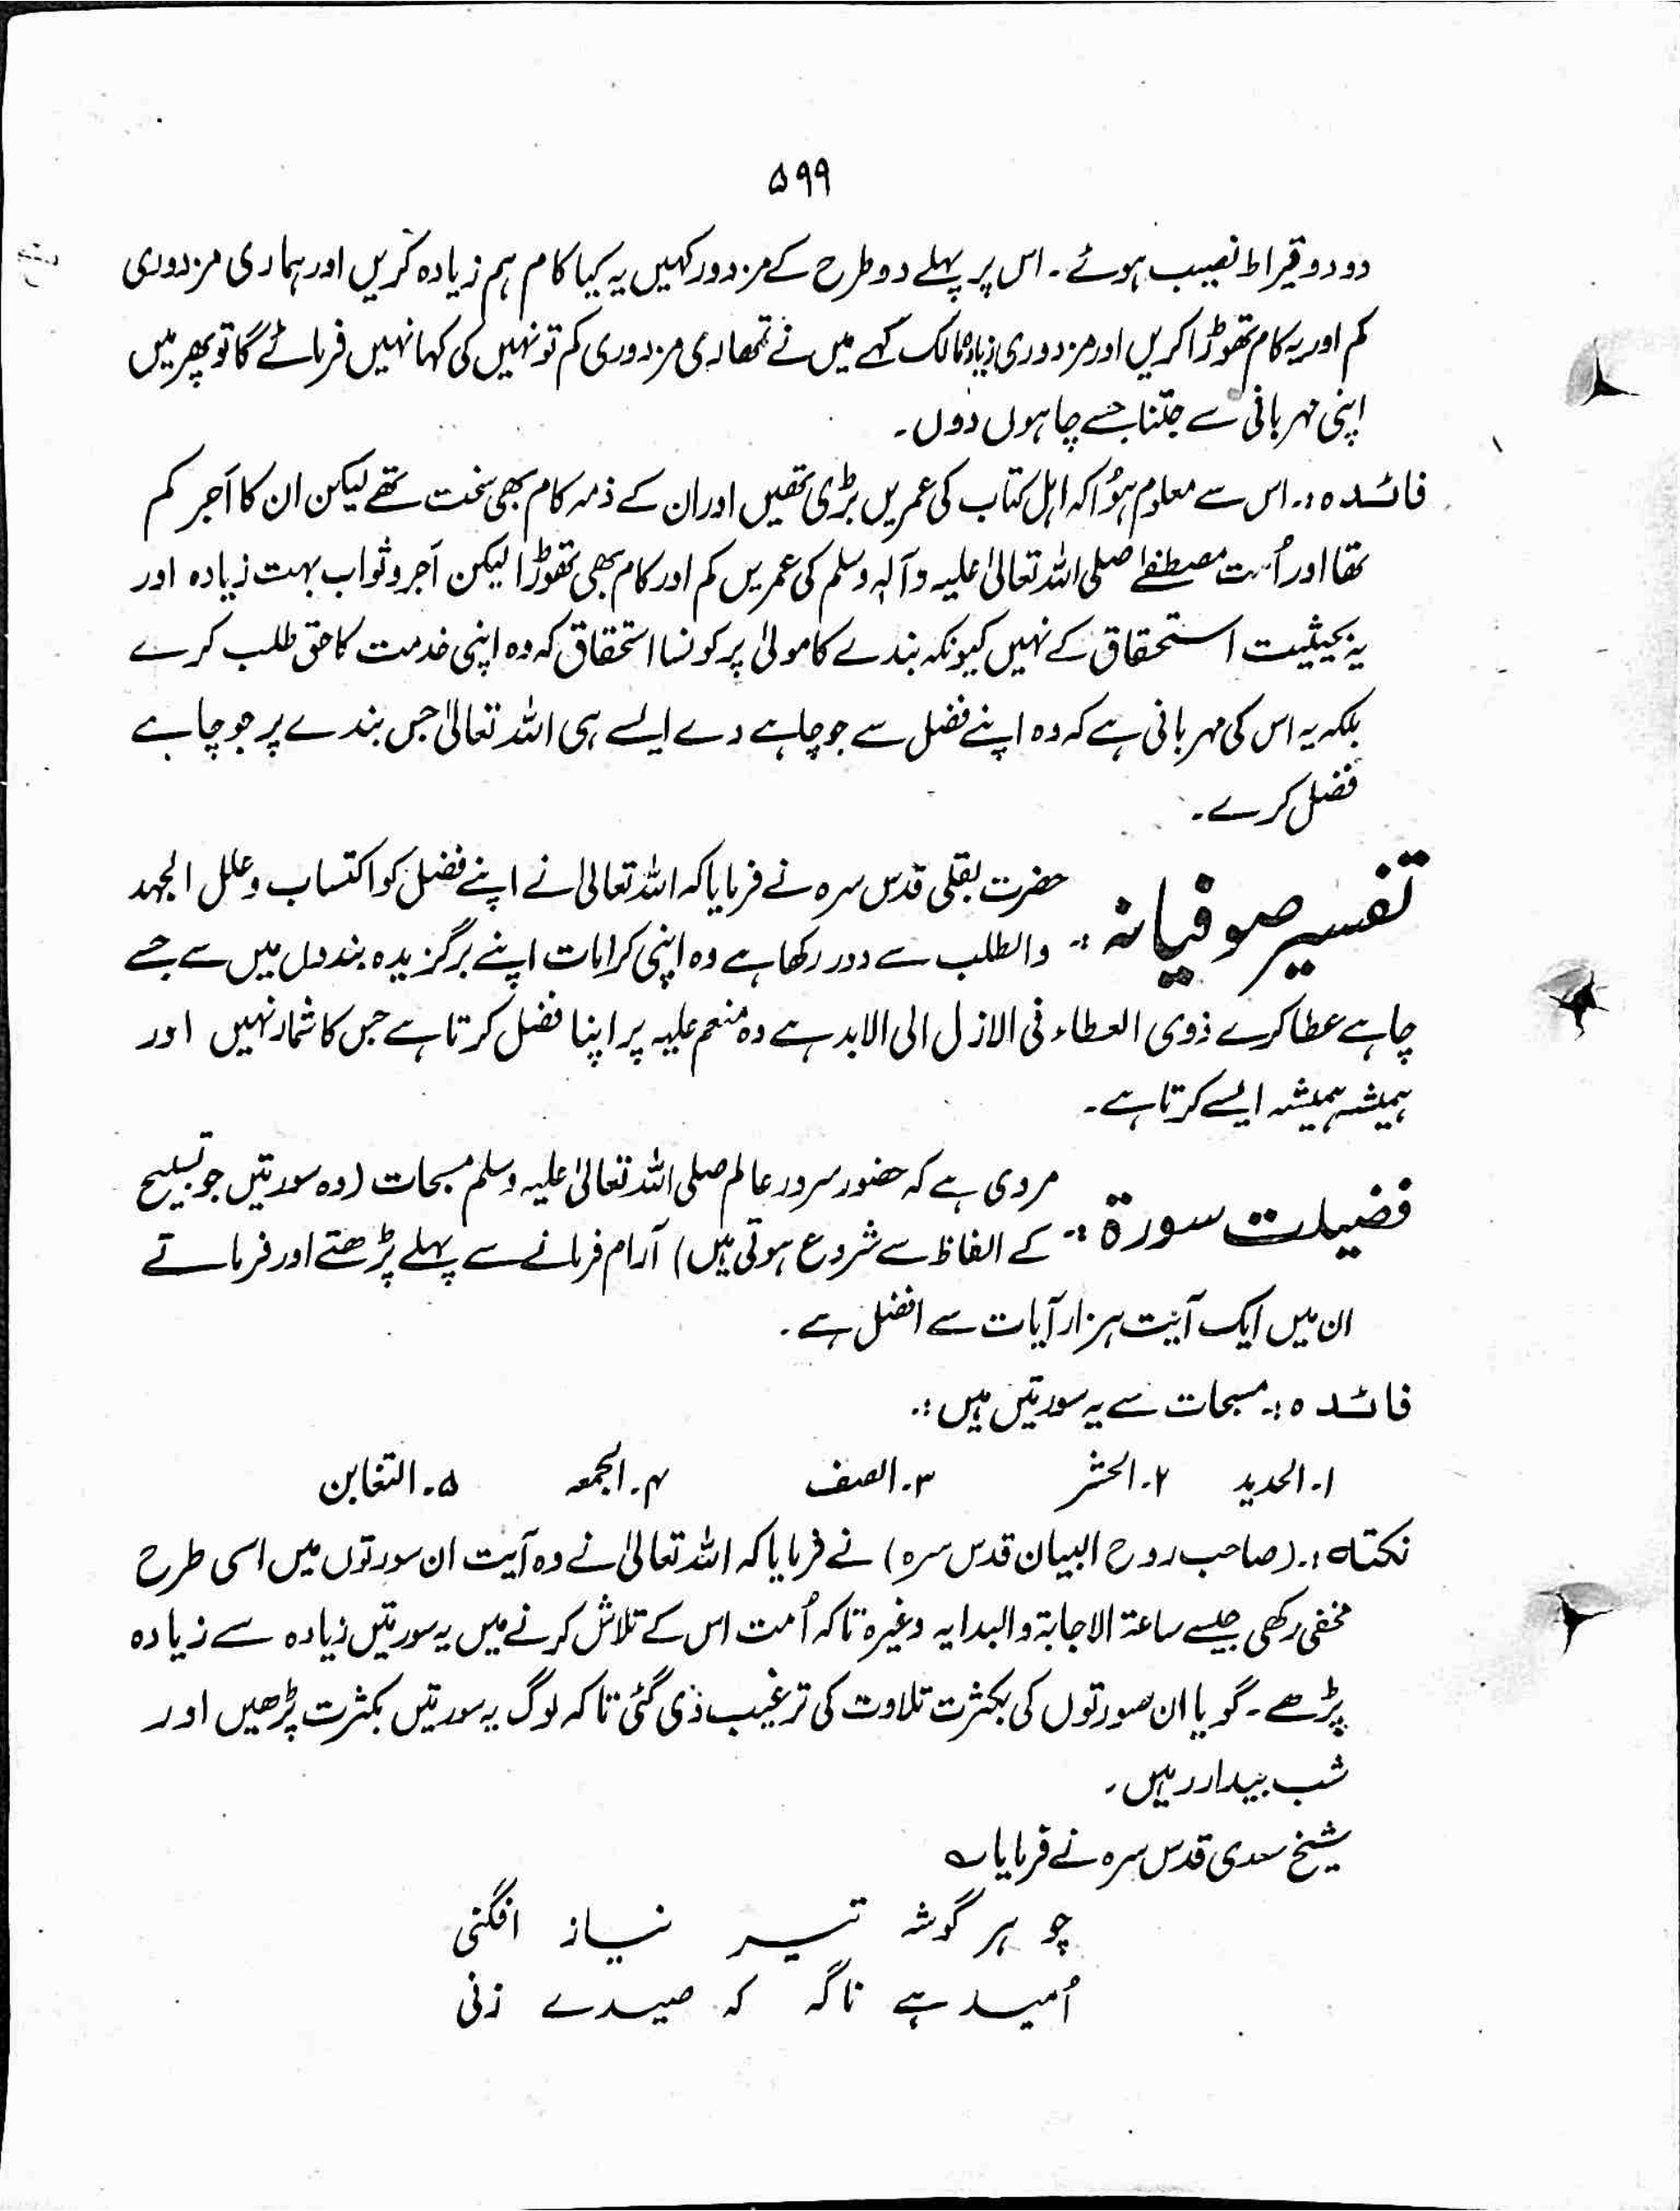 ۵۹۹
دو دو قیراط نصیب ہوئے۔ اس پر پہلے دو طرح کے مزدور کہیں یہ کیا کام ہم زیادہ کریں اور ہماری مزدوری
کم اور یہ کام تھوڑا کریں اور مزدوری زیادہ مالک کہے میں نے تمھاری مزدوری کم تو نہیں کی کہا نہیں فرمائے گا تو پھر میں
اپنی مہربانی سے جتنا جسے چاہوں دوں۔
فائدہ :۔ اس سے معلوم ہؤا کہ اہل کتاب کی عمریں بڑی تھیں اور ان کے ذمہ کام بھی سخت تھے لیکن ان کا اَجر کم
تھا اور اُمت مصطفےٰ صلی اللہ تعالیٰ علیہ وآلہٖ وسلم کی عمریں کم اور کام بھی تھوڑا لیکن اَجر و ثواب بہت زیادہ اور
یہ بحیثیت استحقاق کے نہیں کیونکہ بندے کا مولیٰ پر کونسا استحقاق کہ وہ اپنی خدمت کا حق طلب کرے
بلکہ یہ اس کی مہربانی ہے کہ وہ اپنے فضل سے جو چاہے دے ایسے ہی اللہ تعالیٰ جس بندے پر جو چاہے
فضل کرے۔
تفسیر صوفیانہ :۔ حضرت بقلی قدس سرہ نے فرمایا کہ اللہ تعالیٰ نے اپنے فضل کو اکتساب و علل الجہد
والطلب سے دور رکھا ہے وہ اپنی کرامات اپنے برگزیدہ بندوں میں سے جسے
چاہے عطا کرے ذوی العطاء فی الازل الی الابد ہے وہ منعم علیہ پر اپنا فضل کرتا ہے جس کا شمار نہیں اور
ہمیشہ ہمیشہ ایسے کرتا ہے۔
فضیلت سورۃ :۔ مروی ہے کہ حضور سرور عالم صلی اللہ تعالیٰ علیہ وسلم مسبحات (وہ سورتیں جو تسبیح
کے الفاظ سے شروع ہوتی ہیں) آرام فرمانے سے پہلے پڑھتے اور فرماتے
ان میں ایک آیت ہزار آیات سے افضل ہے۔
فائدہ :۔ مسبحات سے یہ سورتیں ہیں :۔
۱۔ الحدید ۲۔ الحشر ۳۔ الصف ۴۔ الجمعہ ۵۔ التغابن
نکتہ :۔ (صاحب روح البیان قدس سرہ) نے فرمایا کہ اللہ تعالیٰ نے وہ آیت ان سورتوں میں اسی طرح
مخفی رکھی جیسے ساعۃ الاجابۃ والبدایہ وغیرہ تاکہ اُمت اس کے تلاش کرنے میں یہ سورتیں زیادہ سے زیادہ
پڑھے۔ گویا ان صورتوں کی بکثرت تلاوت کی ترغیب دی گئی تاکہ لوگ یہ سورتیں بکثرت پڑھیں اور
شب بیدار رہیں۔
شیخ سعدی قدس سرہ نے فرمایا ؎
چو ہر گوشہ تیر نیاز افگنی
اُمید ہے ناگہ کہ صیدے زنی